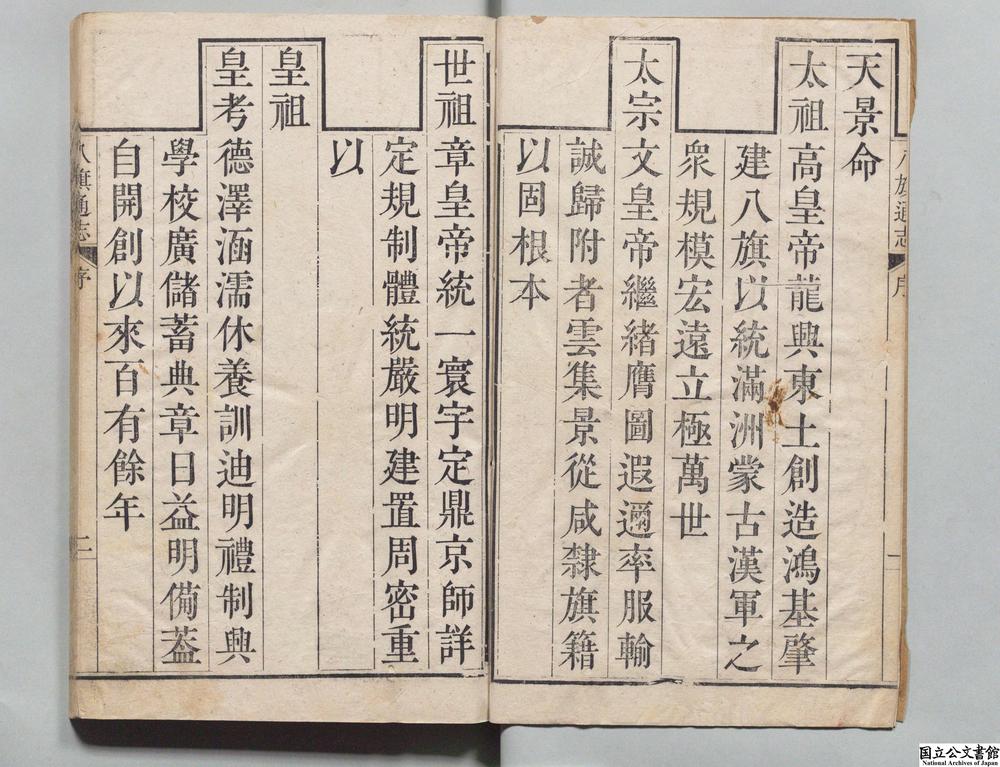 八旗通志 序 一
天景命
太祖高皇帝龍興東土創造鴻基肇
建八旗以統滿洲蒙古漢軍之
衆規模宏遠立極萬世
太宗文皇帝繼緒膺圖遐邇率服輸
誠歸附者雲集景從咸隸旗籍
以固根本
世祖章皇帝統一寰宇定鼎京師詳
定規制體統嚴明建置周密重
以
皇祖
皇考德澤涵濡休養訓迪明禮制興
學校廣儲蓄典章日益明備葢
自開創以來百有餘年
八旗通志 序 二
国立公文書館
National Archives of Japan